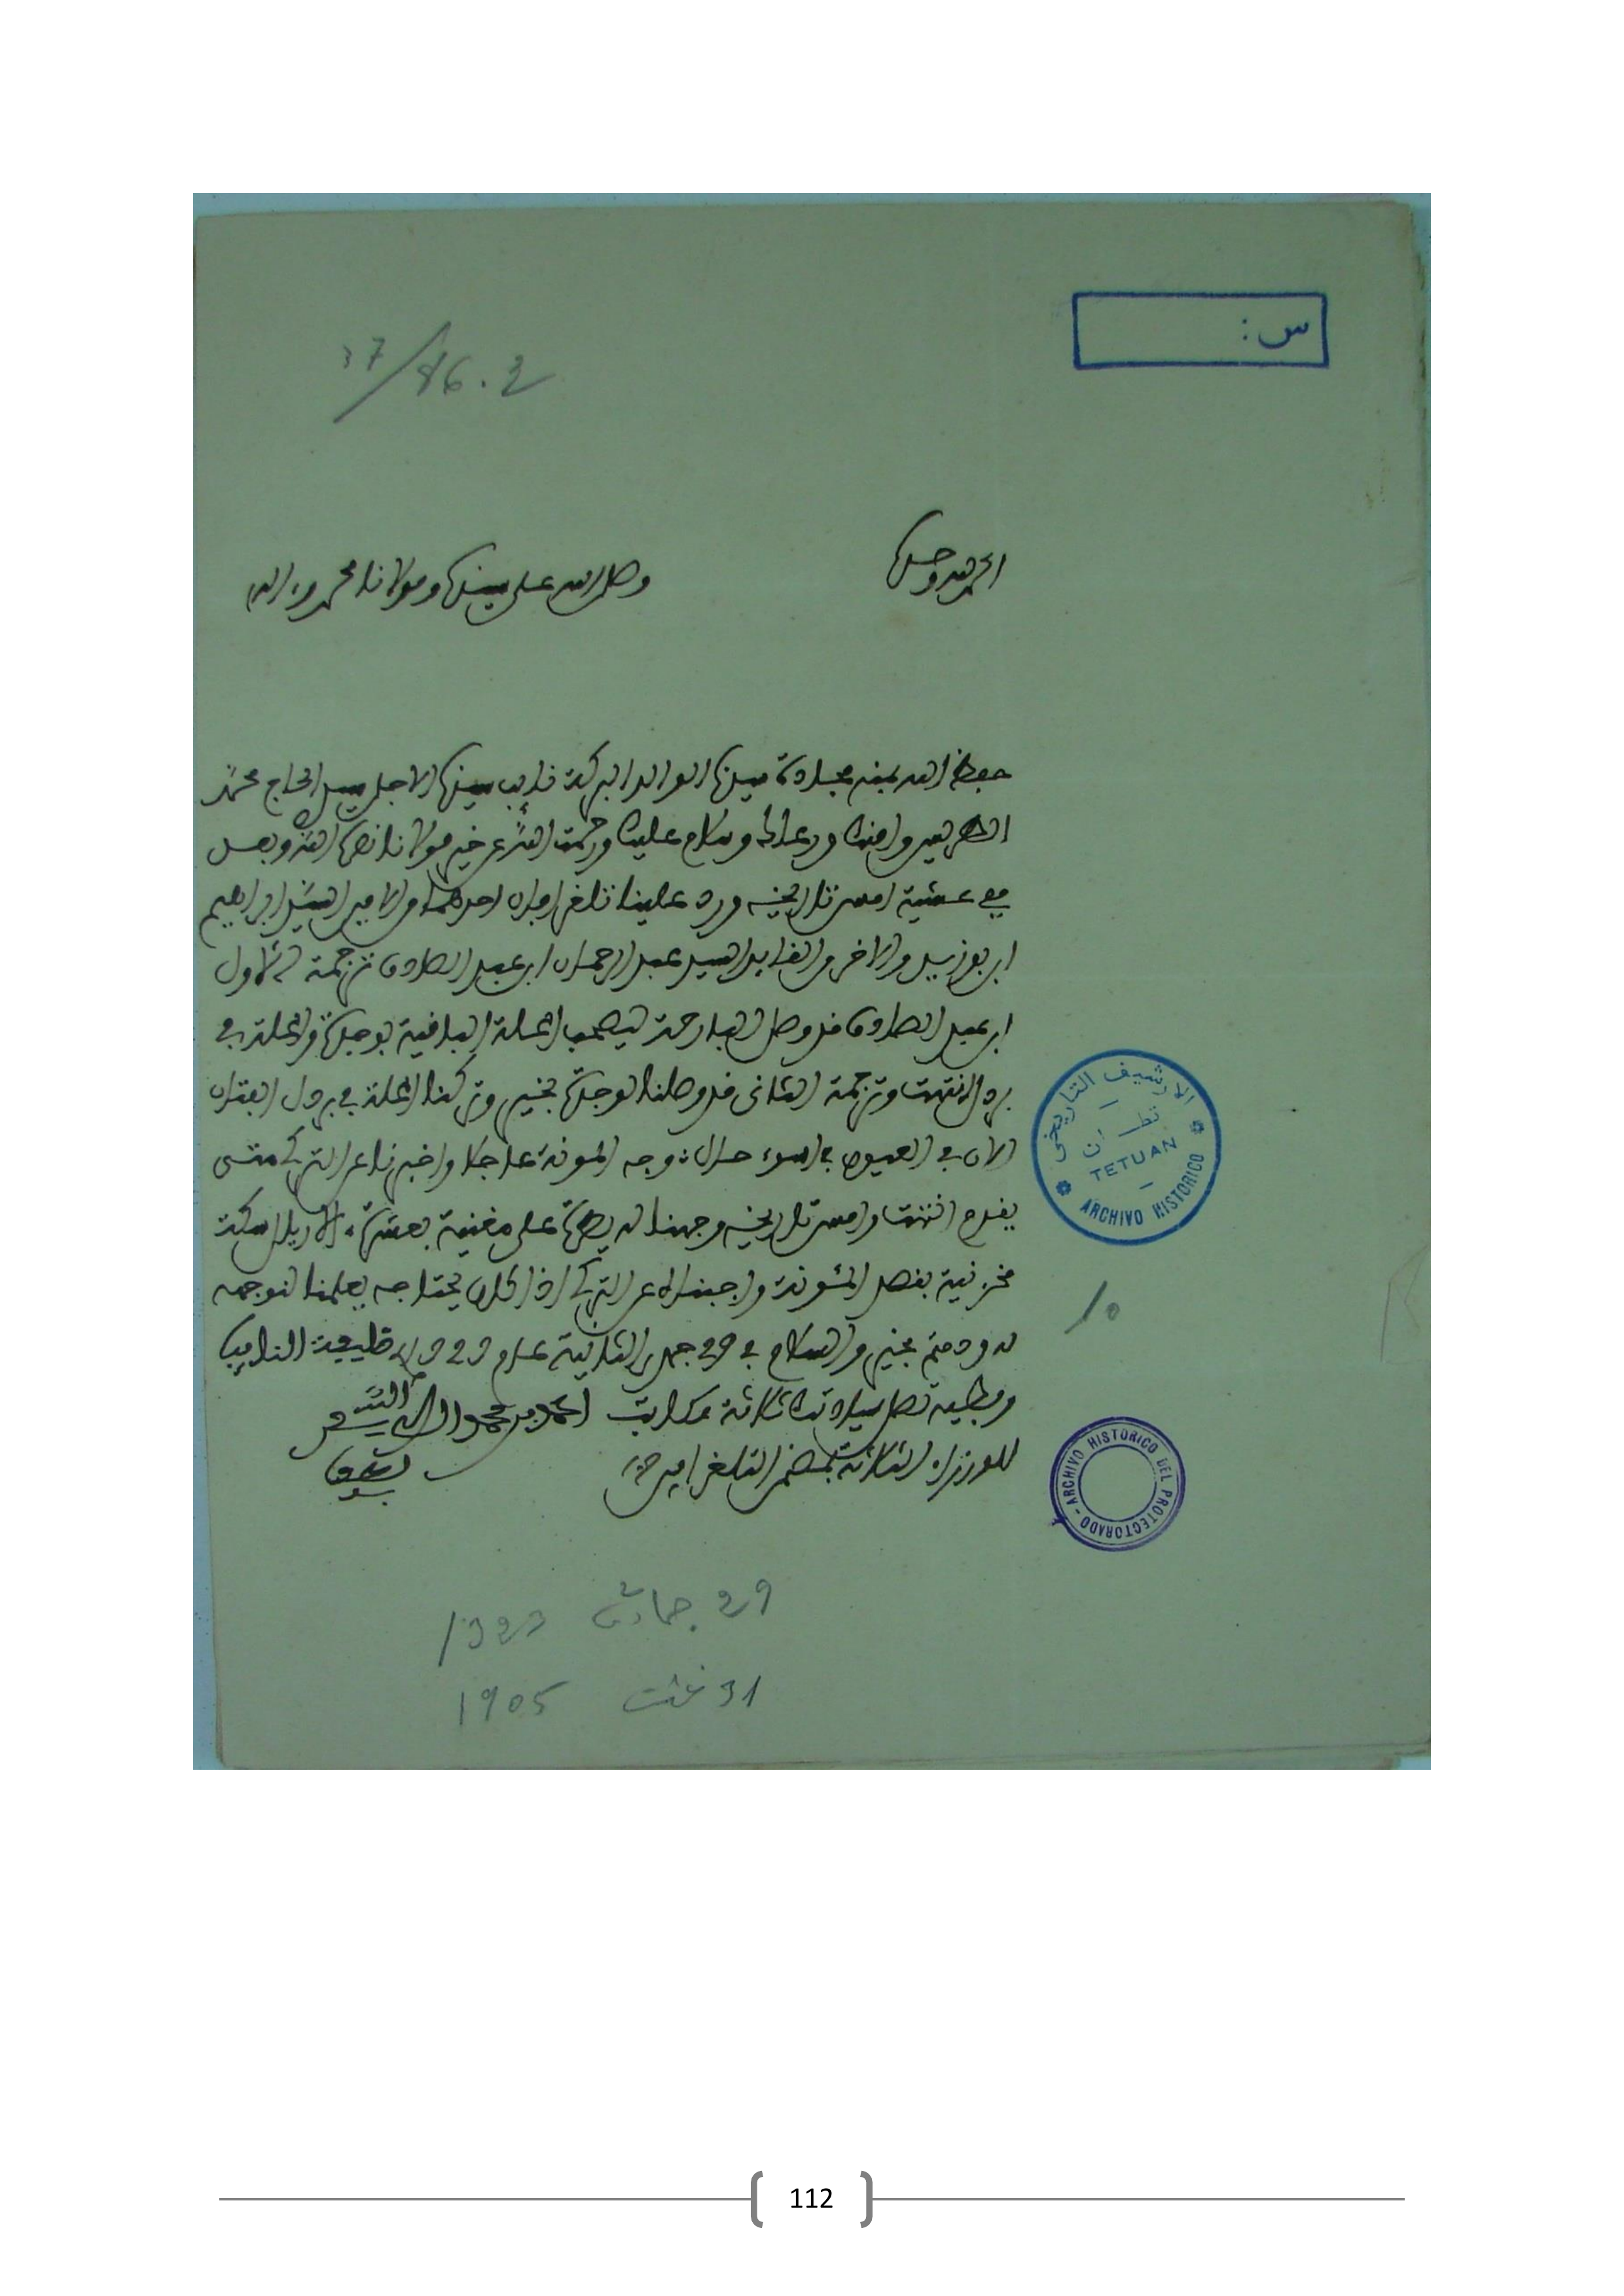 س:
37/86.2
الحمد لله وحده
وصلى الله على سيدنا ومولانا محمد وءاله
حفظ الله بمنه سيادة سيدنا الوالد البركة نايب سيدنا الاجل سيدي الحاج محمد
الطريس وامنك ورعاك وسلام عليك ورحمت الله عن خير مولانا نصره الله وبعد
ففي عشية امس تاريخه ورد علينا تلغرافان احدهما من الامين السيد ابراهيم
ابن بوزيد والاخر من القايد السيد عبد الرحمان ابن عبد الصادق ترجمة الاول
ابن عبد الصادق قد وصل البارحة ليصحب المحلة الباقية بوجدة والمحلة في
انتهت وترجمة الثاني قد وصلنا لوجدة بخير وتركنا المحلة في
الان في العيون في اسوء حال توجه المونة عاجلا واخبرنا عن التركي متى
يقدم انتهت وامس تاريخه وجهنا له على مغنية بعشرة ءالاف ريال سكة
مخزنية بقصد المئونة واجبناه عن التركي اذا كان يحتاجه يعلمنا لنوجهه
له ودمتم بخير والسلام في 29 جمدى الثانية عام 1323 خليفة النايب
وطيه تصل سيادتك ثلاثة مكاتيب احمد بن محمد الله
للوزراء الثلاثة بمضمن التلغرافين
الارشيف التاريخي
تطوان
TETUAN
ARCHIVO HISTORICO
10
ARCHIVO HISTORICO DEL PROTECTORADO
29 جمادى 2 1323
31 غشت 1905
112